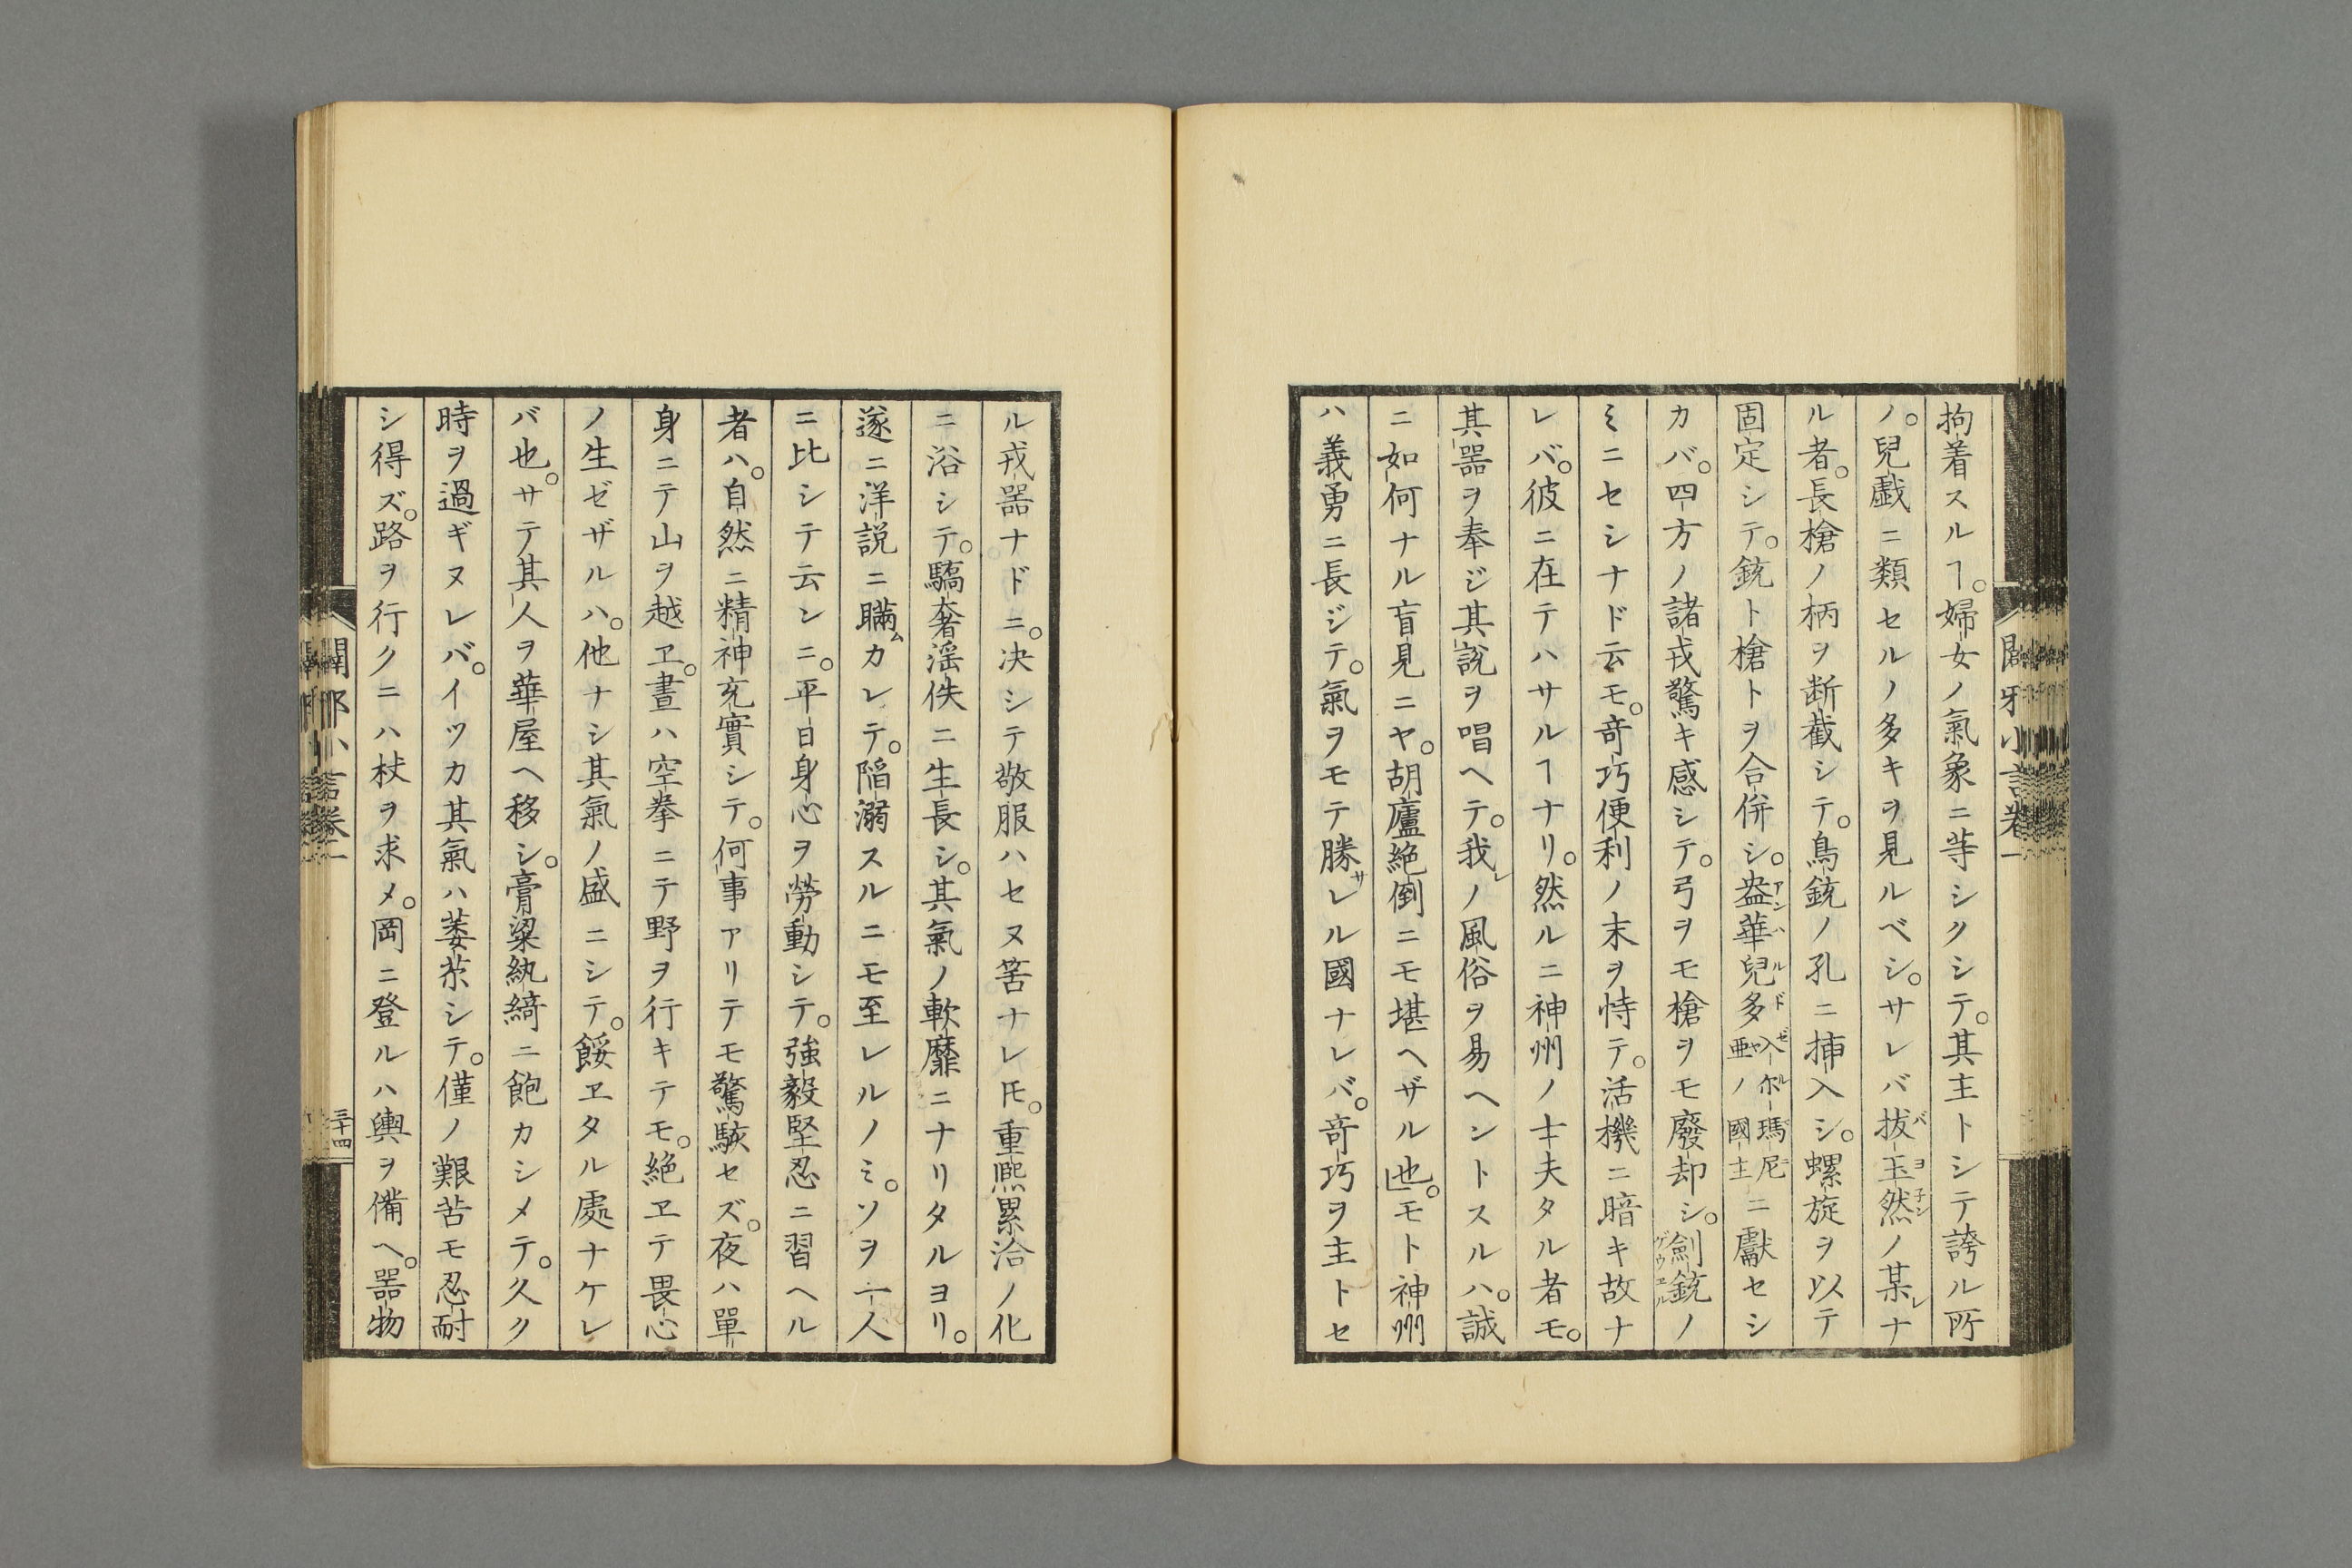 拘着スルヿ。婦女ノ氣象ニ等シクシテ。其主トシテ誇ル所
ノ。兒戲ニ類セルノ多キヲ見ルベシ。サレバ拔玉然ノ某レナ
ル者。長槍ノ柄ヲ断截シテ。鳥銃ノ孔ニ挿入シ。螺旋ヲ以テ
固定シテ。銃ト槍トヲ合併シ。盎華兒多入尓瑪尼亜ノ國主ニ獻セシ
カバ。四方ノ諸戎驚キ感シテ。弓ヲモ槍ヲモ廢却シ。劍銃ノ
ミニセシナド云モ。竒巧便利ノ末ヲ恃テ。活機ニ暗キ故ナ
レバ。彼ニ在テハサルヿナリ。然ルニ神州ノ士夫タル者モ。
其器ヲ奉ジ其説ヲ唱ヘテ。我レノ風俗ヲ易ヘントスルハ。誠
ニ如何ナル盲見ニヤ。胡廬絶倒ニモ堪ヘザル也。モト神州
ハ義勇ニ長ジテ。氣ヲモテ勝サレル國ナレバ。竒巧ヲ主トセ
ル戎器ナドニ。决シテ敬服ハセヌ筈ナレ𪜈。重熈累洽ノ化
ニ浴シテ。驕奢淫佚ニ生長シ。其氣ノ軟靡ニナリタルヨリ。
遂ニ洋説ニ瞞ムカレテ。陷溺スルニモ至レルノミ。ソヲ一人
ニ比シテ云ンニ。平日身心ヲ勞動シテ。強毅堅忍ニ習ヘル
者ハ。自然ニ精神充實シテ。何事アリテモ驚駭セズ。夜ハ單
身ニテ山ヲ越ヱ。晝ハ空拳ニテ野ヲ行キテモ。絶ヱテ畏心
ノ生ゼザルハ。他ナシ其氣ノ盛ニシテ。餒ヱタル處ナケレ
バ也。サテ其人ヲ華屋ヘ移シ。膏粱紈綺ニ飽カシメテ。久ク
時ヲ過ギヌレバ。イツカ其氣ハ萎苶シテ。僅ノ艱苦モ忍耐
シ得ズ。路ヲ行クニハ杖ヲ求メ。岡ニ登ルハ輿ヲ備ヘ。器物
闢邪小言卷一
三十四